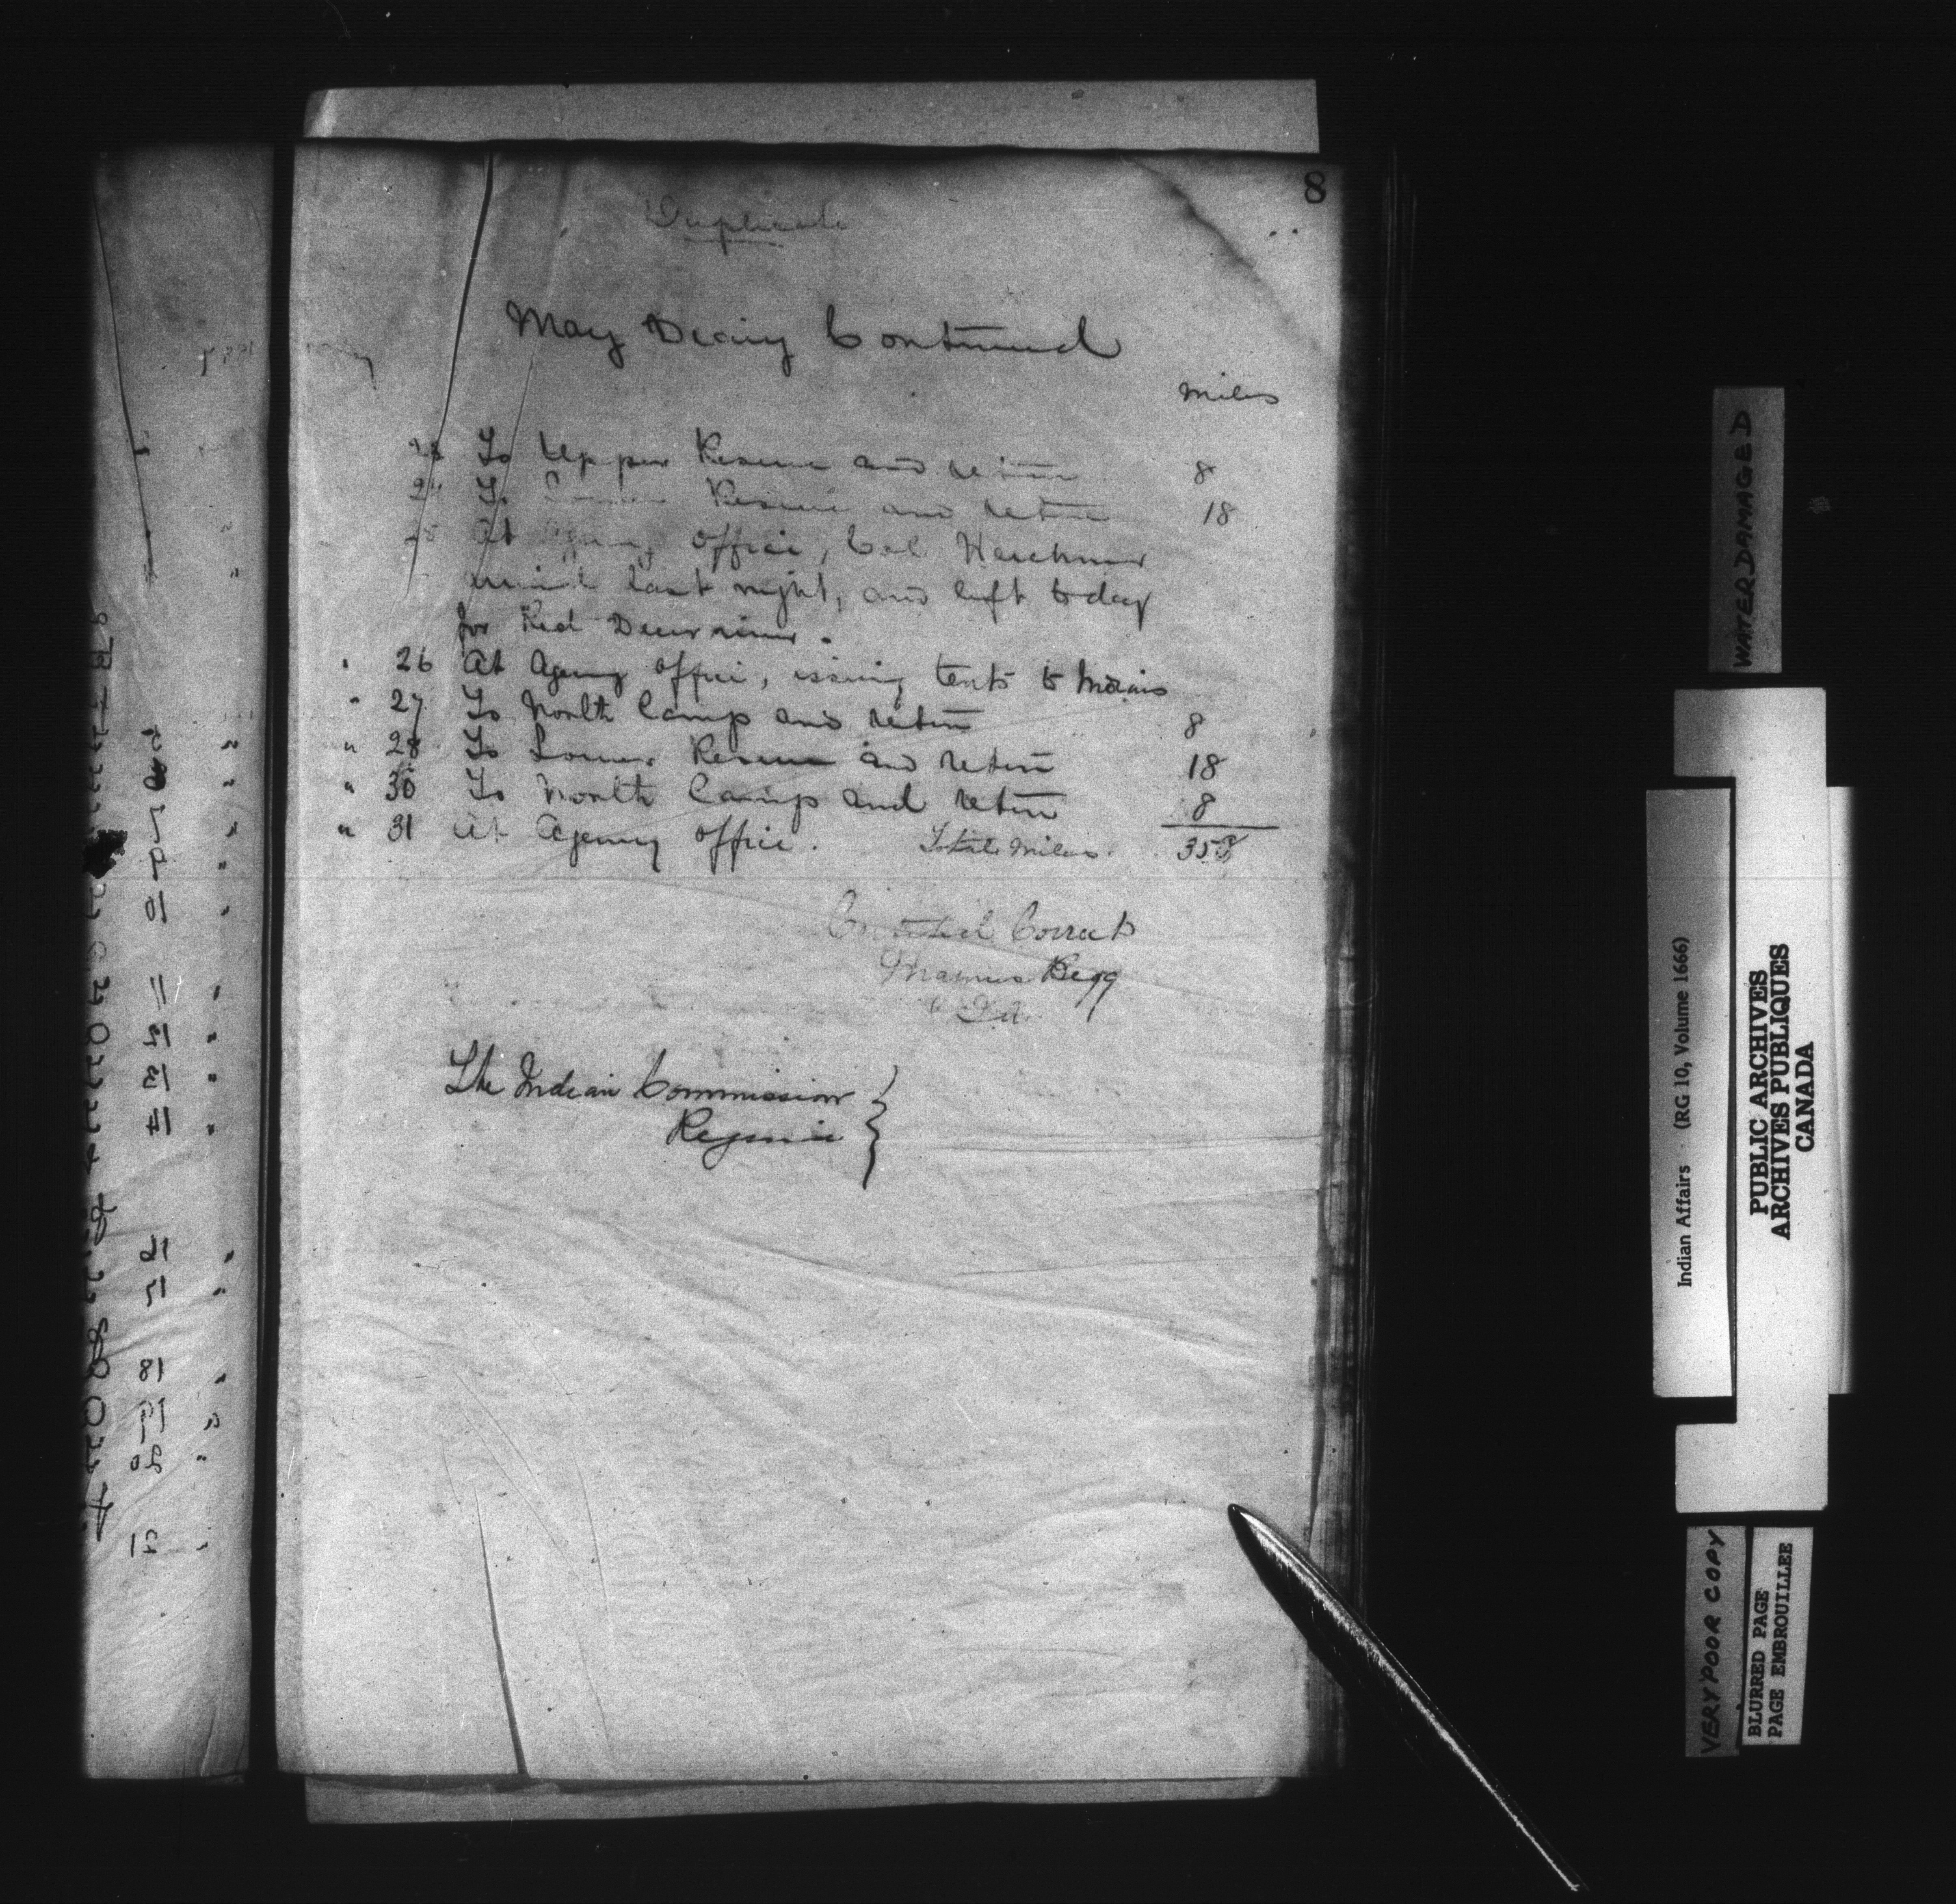 8
Duplicate
May Diary Continued
Miles
23 To Upper Reserve and return 8
24 To Lower Reserve and return 18
25 At Agency Office, Col Herchmer
arrived last night, and left today
for Red Deer river.
" 26 At Agency Office, issuing tents to Indians
" 27 To North Camp and return 8
" 28 To Lower Reserve and return 18
" 30 To North Camp and return 8
" 31 At Agency Office. Total Miles. 358
Certified Correct
Magnus Begg
I.A.
The Indian Commissioner
Regina
WATERDAMAGED
Indian Affairs (RG 10, Volume 1666)
PUBLIC ARCHIVES
ARCHIVES PUBLIQUES
CANADA
VERY POOR COPY
BLURRED PAGE
PAGE EMBROUILLEE